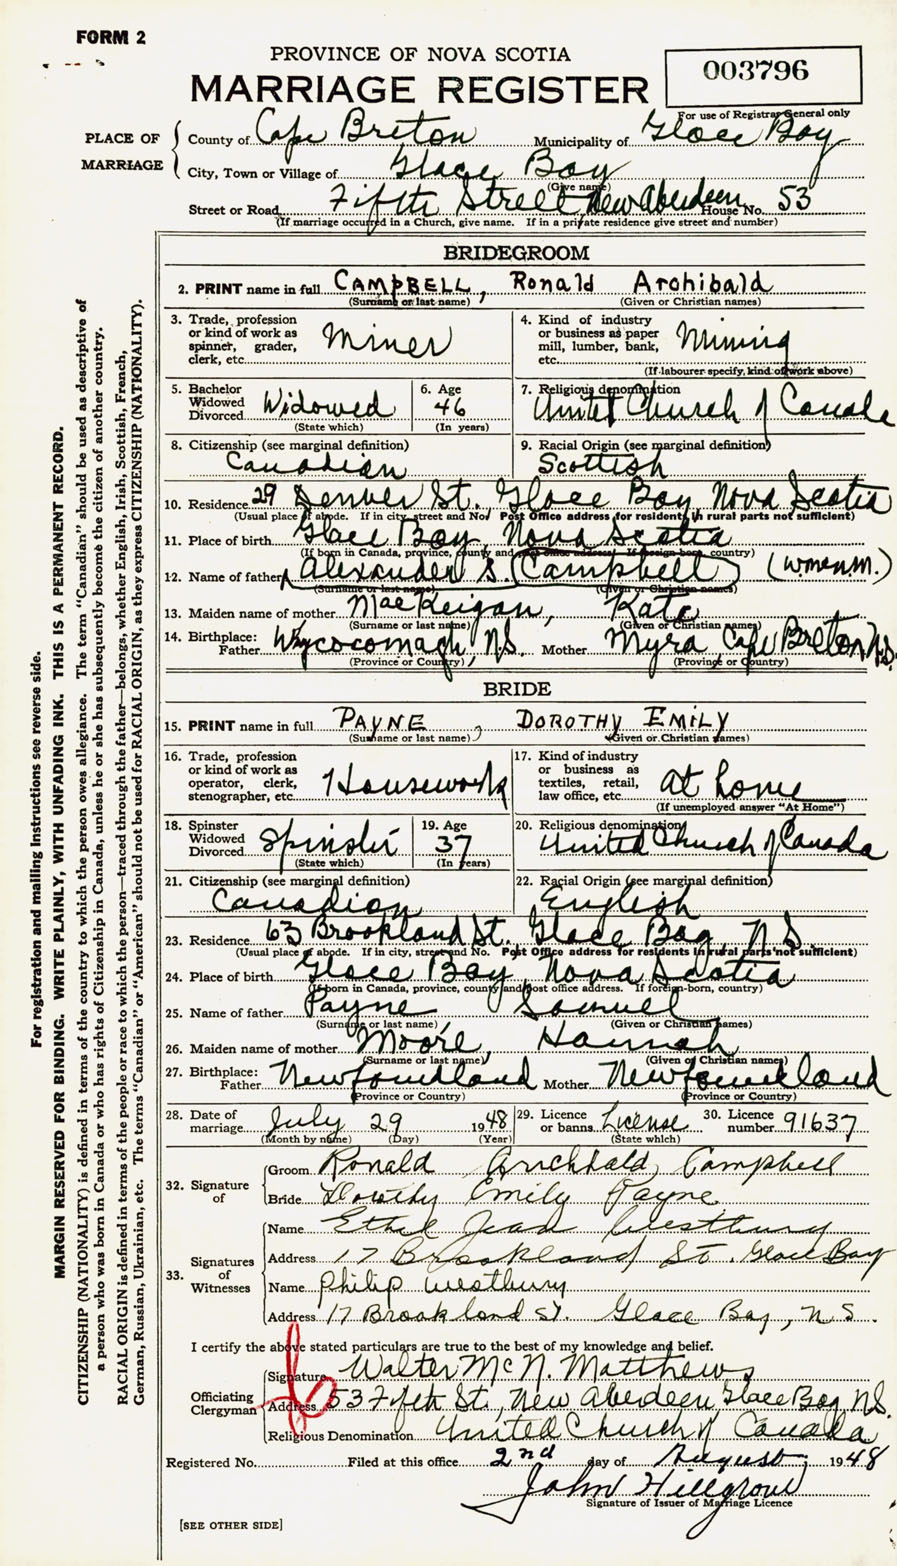 FORM 2
PROVINCE OF NOVA SCOTIA
MARRIAGE REGISTER
003796
For use of Registrar General only
PLACE OF MARRIAGE
County of Cape Breton Municipality of Glace Bay
City, Town or Village of Glace Bay
(Give name)
Street or Road Fifth Street New Aberdeen House No. 53
(If marriage occurred in a Church, give name. If in a private residence give street and number)
BRIDEGROOM
2. PRINT name in full CAMPBELL, Ronald Archibald
(Surname or last name) (Given or Christian names)
3. Trade, profession or kind of work as spinner, grader, clerk, etc. Miner
4. Kind of industry or business as paper mill, lumber, bank, etc. Mining
(If labourer specify, kind of work above)
5. Bachelor Widowed Divorced Widowed
(State which)
6. Age 46
(In years)
7. Religious denomination United Church of Canada
8. Citizenship (see marginal definition) Canadian
9. Racial Origin (see marginal definition) Scottish
10. Residence 29 Denver St. Glace Bay Nova Scotia
(Usual place of abode. If in city, street and No. Post Office address for residents in rural parts not sufficient)
11. Place of birth Glace Bay, Nova Scotia
(If born in Canada, province, county and post office address. If foreign-born, country)
12. Name of father Alexander S. Campbell
(Surname or last name) (Given or Christian names)
13. Maiden name of mother MacKeigan, Kate
(Surname or last name) (Given or Christian names)
14. Birthplace: Father Whycocomagh, N.S. Mother Myra Cape Breton N.S.
(Province or Country) (Province or Country)
BRIDE
15. PRINT name in full PAYNE, DOROTHY EMILY
(Surname or last name) (Given or Christian names)
16. Trade, profession or kind of work as operator, clerk, stenographer, etc. Housework
17. Kind of industry or business as textiles, retail, law office, etc. at home
(If unemployed answer "At Home")
18. Spinster Widowed Divorced Spinster
(State which)
19. Age 37
(In years)
20. Religious denomination United Church of Canada
21. Citizenship (see marginal definition) Canadian
22. Racial Origin (see marginal definition) English
23. Residence 63 Brookland St. Glace Bay, N.S.
(Usual place of abode. If in city, street and No. Post Office address for residents in rural parts not sufficient)
24. Place of birth Glace Bay, Nova Scotia
(If born in Canada, province, county and post office address. If foreign-born, country)
25. Name of father Payne Samuel
(Surname or last name) (Given or Christian names)
26. Maiden name of mother Moore, Hannah
(Surname or last name) (Given or Christian names)
27. Birthplace: Father Newfoundland Mother Newfoundland
(Province or Country) (Province or Country)
28. Date of marriage July 29 1948
(Month by name) (Day) (Year)
29. Licence or banns License
(State which)
30. Licence number 91637
32. Signature of
Groom Ronald Archibald Campbell
Bride Dorothy Emily Payne
33. Signatures of Witnesses
Name Ethel Jean Westbury
Address 17 Brookland St. Glace Bay
Name Philip Westbury
Address 17 Brookland St. Glace Bay, N.S.
I certify the above stated particulars are true to the best of my knowledge and belief.
Officiating Clergyman
Signature Walter McN. Matthews
Address 53 Fifth St., New Aberdeen, Glace Bay, N.S.
Religious Denomination United Church of Canada
Registered No. Filed at this office 2nd day of August, 1948
John Hillgrove
Signature of Issuer of Marriage Licence
[SEE OTHER SIDE]
For registration and mailing instructions see reverse side.
MARGIN RESERVED FOR BINDING. WRITE PLAINLY, WITH UNFADING INK. THIS IS A PERMANENT RECORD.
CITIZENSHIP (NATIONALITY) is defined in terms of the country to which the person owes allegiance. The term "Canadian" should be used as descriptive of
a person who was born in Canada or who has rights of Citizenship in Canada, unless he or she has subsequently become the citizen of another country.
RACIAL ORIGIN is defined in terms of the people or race to which the person—traced through the father—belongs, whether English, Irish, Scottish, French,
German, Russian, Ukrainian, etc. The terms "Canadian" or "American" should not be used for RACIAL ORIGIN, as they express CITIZENSHIP (NATIONALITY).